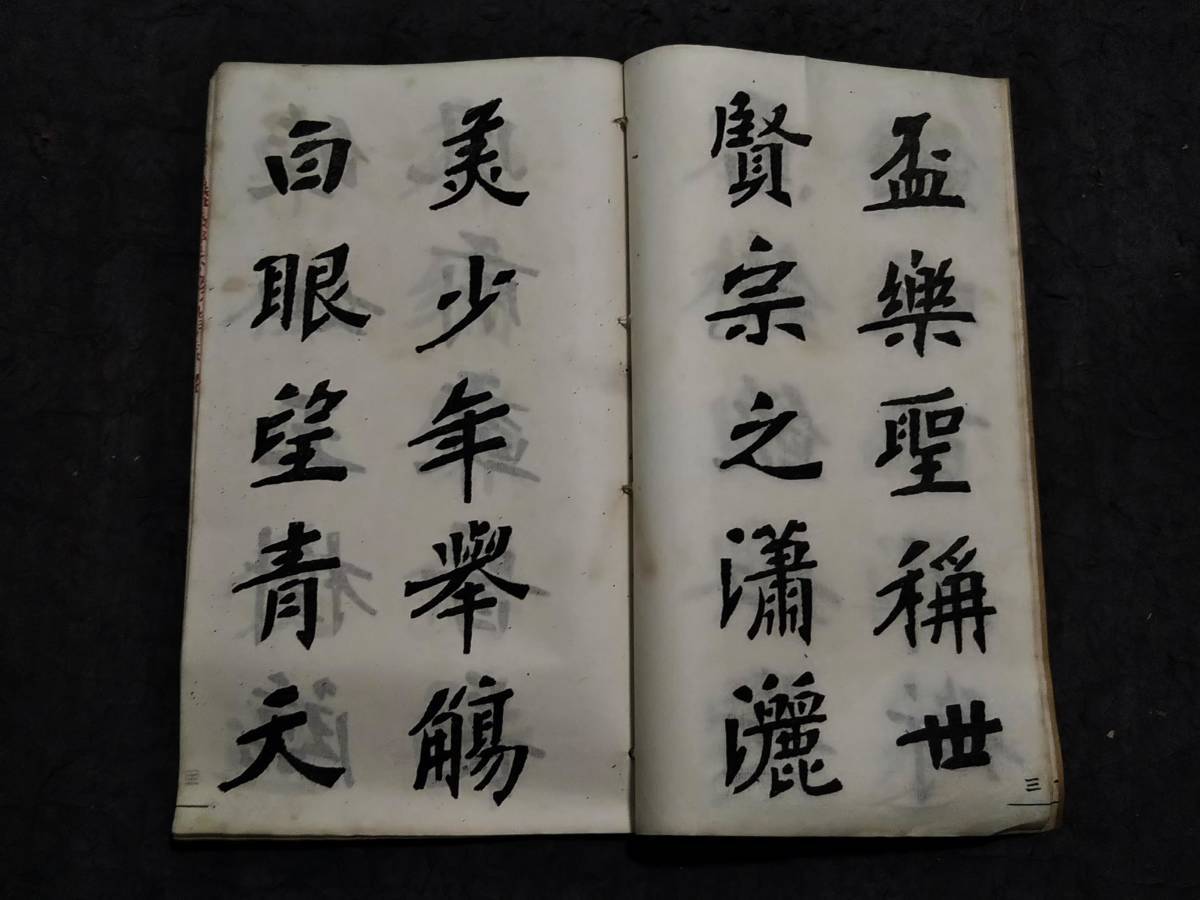 盃樂聖稱世
賢宗之瀟灑
三
美少年舉觴
白眼望青天